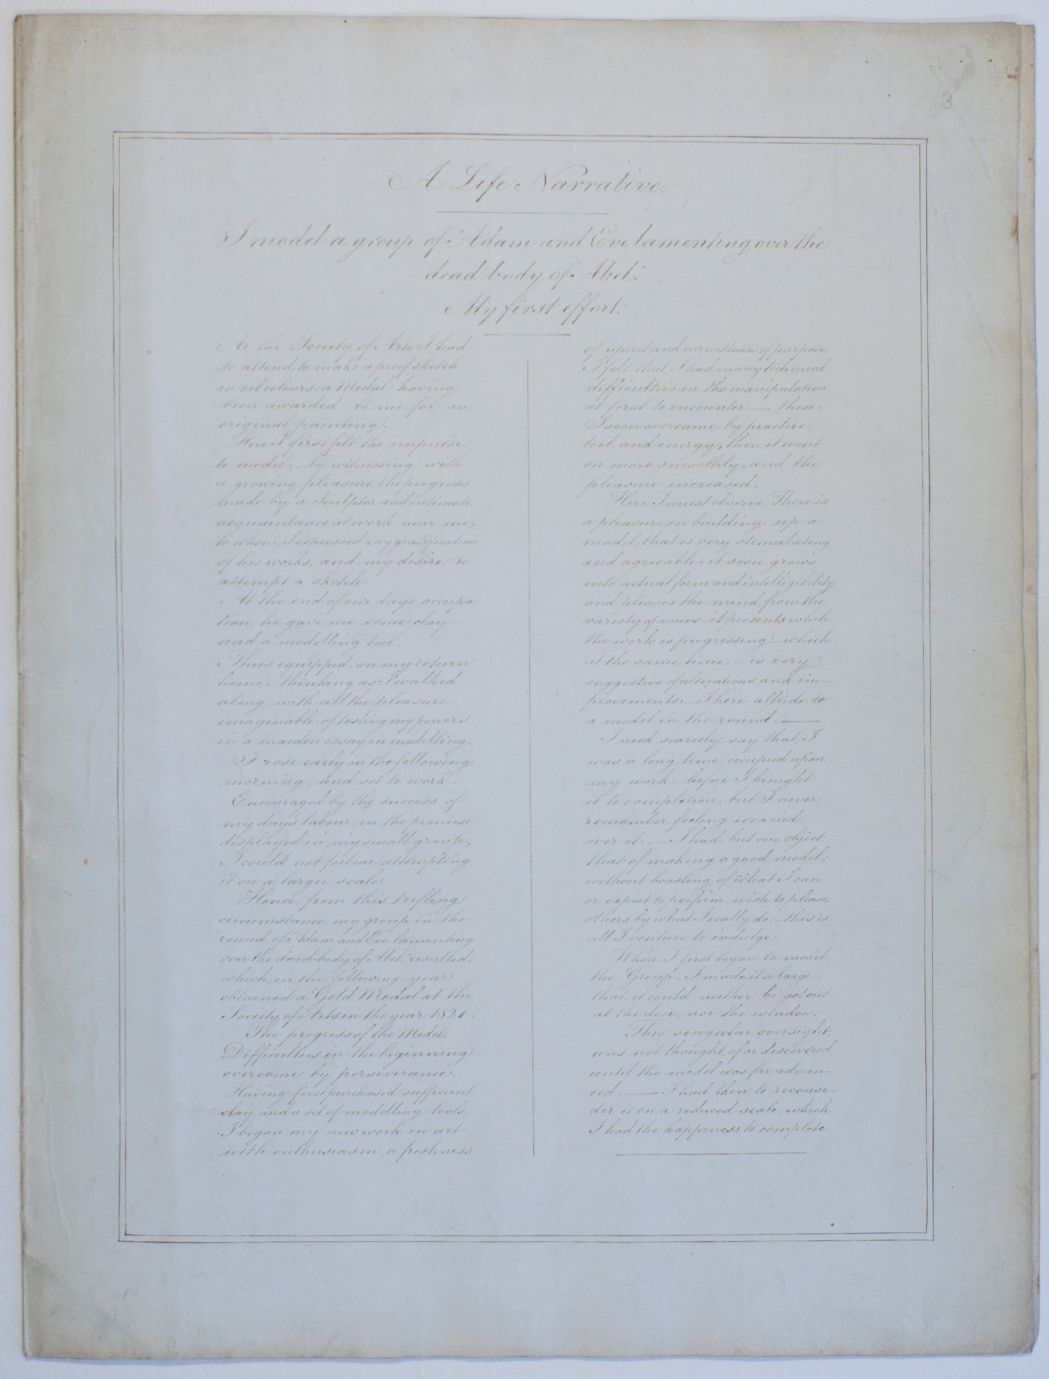 3
A Life Narrative.
I model a group of "Adam and Eve lamenting over the
dead body of Abel."
My first effort.
At the Society of Arts I had
to attend, to make a proof sketch
in oil colours: a Medal having
been awarded to me for an
original painting.
Here I first felt the impulse
to model; by witnessing with
a growing pleasure the progress
made by a Sculptor and intimate
acquaintance at work near me,
to whom I expressed my gratification
of his works, and my desire to
attempt a sketch.
At the end of our days occupa-
tion, he gave me some clay
and a modelling tool.
Thus equipped, on my return
home, thinking as I walked
along with all the pleasure
imaginable, of testing my powers
in a maiden essay in modelling.
I rose early on the following
morning, and set to work.
Encouraged by the success of
my days labour, on the promise
displayed in my small group,
I could not forbear attempting
it on a larger scale.
Hence from this trifling
circumstance, my group in the
round, of "Adam and Eve lamenting
over the dead body of Abel," resulted,
which in the following year
obtained a Gold Medal at the
Society of Arts in the year 1821.
The progress of the Model.
Difficulties in the beginning
overcome by perseverance.
Having first purchased sufficient
clay and a set of modelling tools,
I began my new work in art
with enthusiasm, a freshness
of spirit and earnestness of purpose.
I felt that I had many technical
difficulties in the manipulation
at first to encounter — these,
I soon overcame by practice,
tool and energy, then it went
on more smoothly, and the
pleasure increased.
Here I must observe, There is
a pleasure in building up a
model, that is very stimulating
and agreeable: it soon grows
into actual form and intelligibility
and pleases the mind from the
variety of views it presents while
the work is progressing — which
at the same time — is very
suggestive of alterations and im-
provements. I here allude to
a model in the round. —
I need scarcely say that I
was a long time occupied upon
my work, before I brought
it to completion, but I never
remember feeling wearied
over it. — I had but one object,
that of making a good model;
without boasting of what I can
or expect to perform, wish to please
others by what I really do: this is
all I venture to indulge.
When I first began to model
the Group, I made it so large
that it could neither be got out
at the door, nor the window.
This singular oversight
was not thought of or discovered
until the model was far advan-
ced. — I had then to reconsi-
der it on a reduced scale, which
I had the happiness to complete